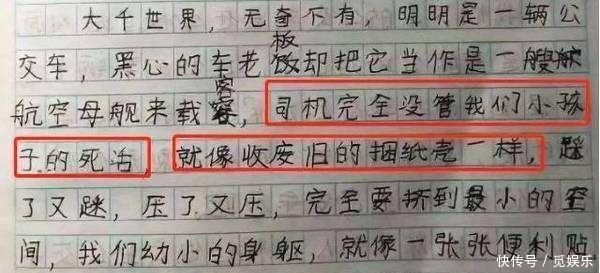 大千世界，无奇不有，明明是一辆公
交车，黑心的车老板却把它当作是一艘
航空母舰来载客，司机完全没管我们小孩
子的死活，就像收废旧的捆纸壳一样，踩
了又踩，压了又压，完全要挤到最小的空
间，我们幼小的身躯，就像一张张便利贴
快传号 / 觅娱乐